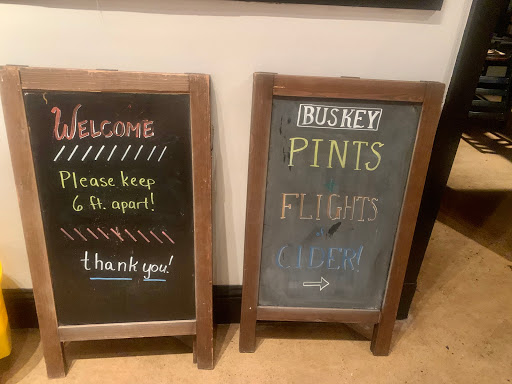 WELCOME
Please keep
6 ft. apart!
thank you!
BUSKEY
PINTS
FLIGHTS
CIDER!